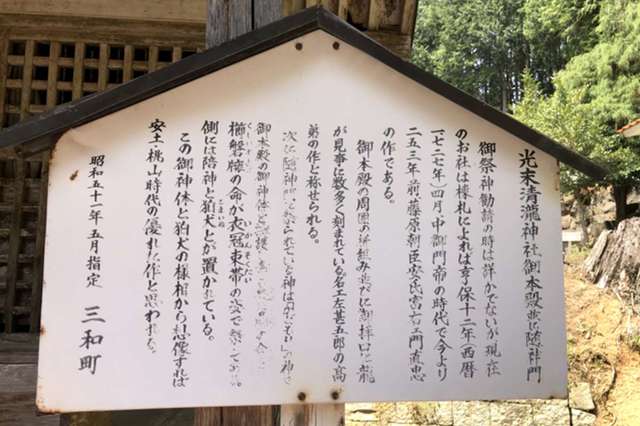 光末清瀧神社御本殿並に随神門
御祭神勧請の時は詳かでないが現在
のお社は棟札によれば享保十二年(西暦
一七二七年)四月、中御門帝の時代で今より
二五三年前、藤原朝臣安氏宮右ヱ門直忠
の作である。
御本殿の周囲の桝組み並びに御拝口に龍
が見事に数多く刻まれている名工左甚五郎の高
弟の作と称せられる。
次に随神門に祭られている神は の神で
御本殿の御神体を
櫛 の命が衣冠束帯の姿で
いかんそくたい
側には陪神と狛犬とが置かれている。
こまいぬ
この御神体と狛犬の様相から想像すれば
安土桃山時代の優れた作と思われる。
昭和五十一年五月指定 三和町